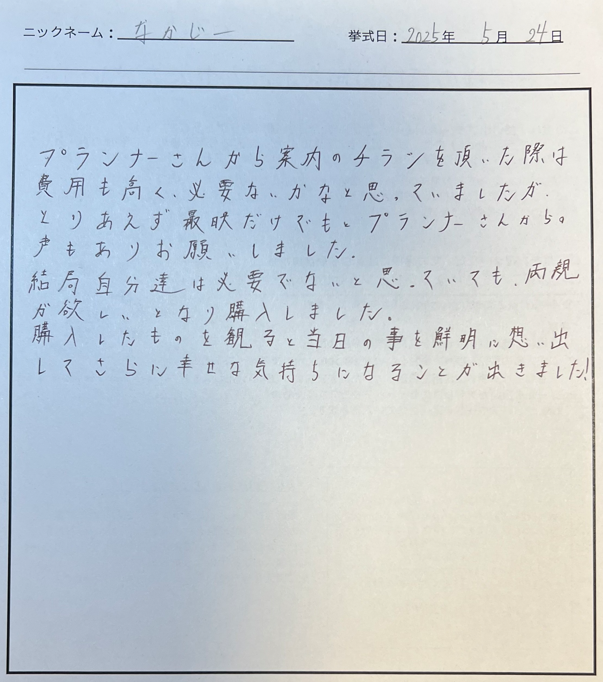 ニックネーム：なかじー 挙式日：2025年 5月 24日
プランナーさんから案内のチラシを頂いた際は
費用も高く、必要ないかなと思っていましたが、
とりあえず最映だけでもとプランナーさんからの
声もありお願いしました。
結局自分達は必要でないと思っていても、両親
が欲しいとなり購入しました。
購入したものを観ると当日の事を鮮明に想い出
してさらに幸せな気持ちになることが出きました!